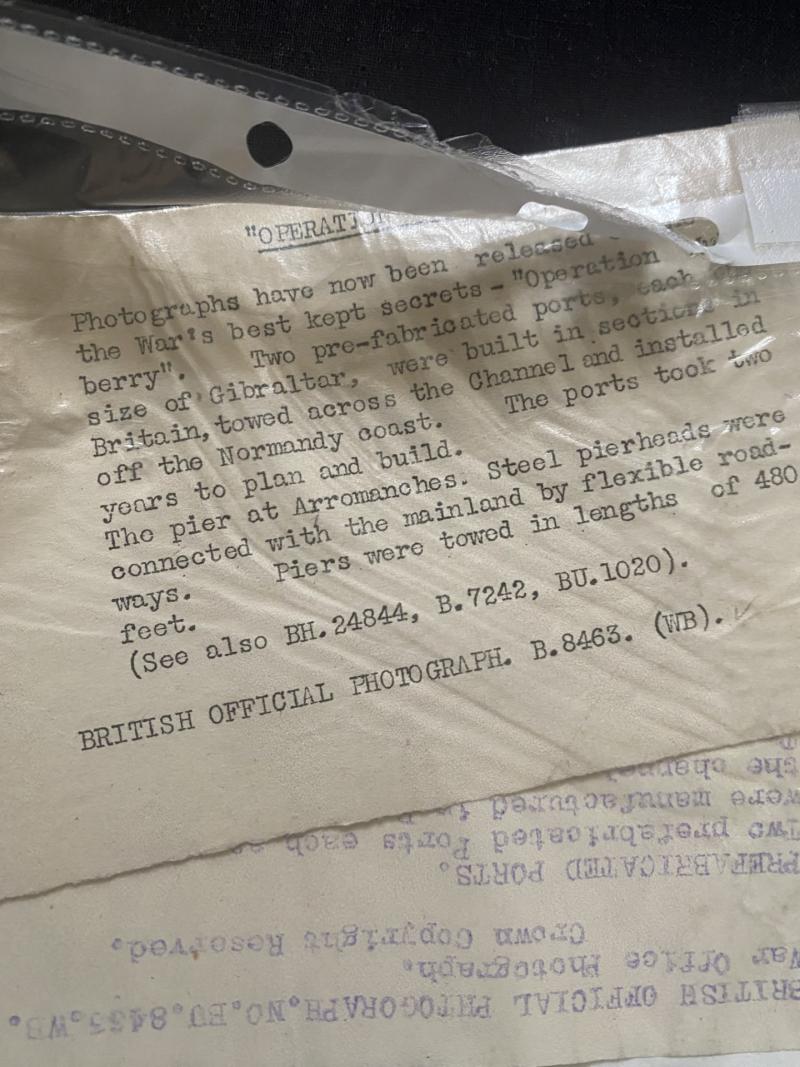 "OPERATIO
Photographs have now been released
the War's best kept secrets - "Operation
berry". Two pre-fabricated ports, each
size of Gibraltar, were built in sections in
Britain, towed across the Channel and installed
off the Normandy coast. The ports took two
years to plan and build.
The pier at Arromanches. Steel pierheads were
connected with the mainland by flexible road-
ways. Piers were towed in lengths of 480
feet.
(See also BH.24844, B.7242, BU.1020).
BRITISH OFFICIAL PHOTOGRAPH. B.8463. (WB).
BRITISH OFFICIAL PHTOGRAPH.NO.BU.8435.WB.
War Office Photograph.
Crown Copyright Reserved.
PREFABRICATED PORTS.
Two prefabricated Ports each
were manufactured in
the channel